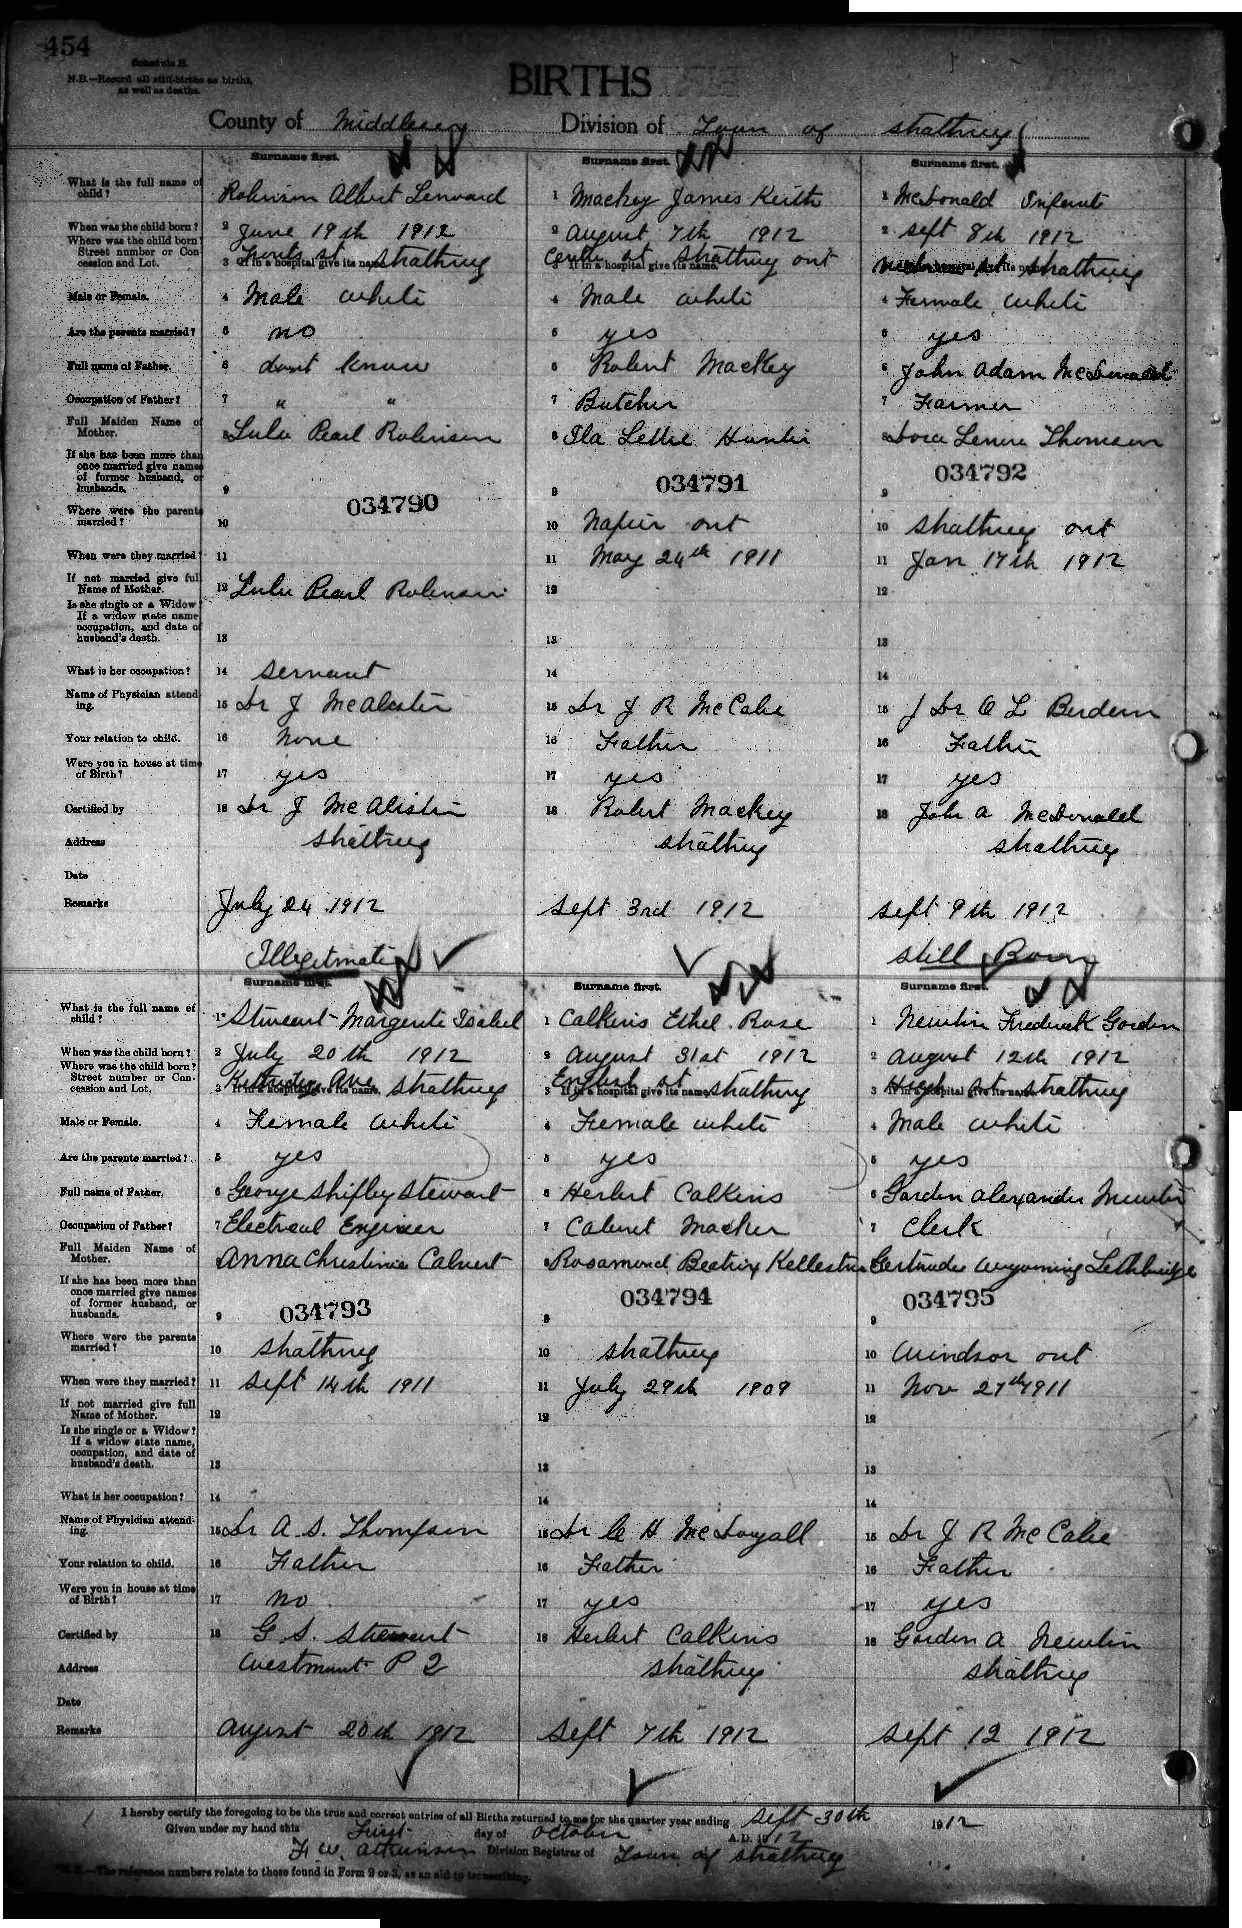 454
Schedule B.
N.B.—Record all still-births as births,
as well as deaths.
BIRTHS
County of Middlesex Division of Town of Strathroy
Surname first. Surname first. Surname first.
What is the full name of child? Robinson Albert Lenward 1 Mackey James Keith 1 McDonald Infante
When was the child born? 2 June 19th 1912 2 August 7th 1912 2 Sept 8th 1912
Where was the child born? Street number or Concession and Lot. 3 st Strathroy Centre st Strathroy ont st Strathroy
If in a hospital give its name. If in a hospital give its name.
Male or Female. 4 Male white 4 Male white 4 Female white
Are the parents married? 5 no 5 yes 5 yes
Full name of Father. 6 dont know 6 Robert Mackey 6 John Adam McDonald
Occupation of Father? 7 " " 7 Butcher 7 Farmer
Full Maiden Name of Mother. 8 Lulu Pearl Robinson 8 Ila Lellie Hunter 8 Dora Lenore Thomson
If she has been more than once married give names of former husband, or husbands. 9 9 9
034790 034791 034792
Where were the parents married? 10 10 Napier ont 10 Strathroy ont
When were they married? 11 11 May 24th 1911 11 Jan 17th 1912
If not married give full Name of Mother. 12 Lulu Pearl Robinson 12 12
Is she single or a Widow? If a widow state name, occupation, and date of husband's death. 13 13 13
What is her occupation? 14 Servant 14 14
Name of Physician attending. 15 Dr J McAlister 15 Dr J R McCabe 15 Dr O L Berdan
Your relation to child. 16 None 16 Father 16 Father
Were you in house at time of Birth? 17 yes 17 yes 17 yes
Certified by 18 Dr J McAlister 18 Robert Mackey 18 John A McDonald
Address Strathroy Strathroy Strathroy
Date
Remarks July 24 1912 Sept 3rd 1912 Sept 9th 1912
Illegitimate Still Born
Surname first. Surname first. Surname first.
What is the full name of child? 1 Stewart Margerite Isabel 1 Calkins Ethel Rose 1 Newton Frederick Gordon
When was the child born? 2 July 20th 1912 2 August 31st 1912 2 August 12th 1912
Where was the child born? Street number or Concession and Lot. 3 Ave Strathroy 3 English st Strathroy 3 High st Strathroy
If in a hospital give its name. If in a hospital give its name. If in a hospital give its name.
Male or Female. 4 Female white 4 Female white 4 Male white
Are the parents married? 5 yes 5 yes 5 yes
Full name of Father. 6 George Shifley Stewart 6 Herbert Calkins 6 Gordon Alexander Newton
Occupation of Father? 7 Electrical Engineer 7 Cabinet Macker 7 Clerk
Full Maiden Name of Mother. Anna Christinia Calvert 8 Rosamond Beatrix Gertrude Wyoming Lethbridge
If she has been more than once married give names of former husband, or husbands. 9 9 9
034793 034794 034795
Where were the parents married? 10 Strathroy 10 Strathroy 10 Windsor ont
When were they married? 11 Sept 14th 1911 11 July 29th 1909 11 Nov 27th 1911
If not married give full Name of Mother. 12 12 12
Is she single or a Widow? If a widow state name, occupation, and date of husband's death. 13 13 13
What is her occupation? 14 14 14
Name of Physician attending. 15 Dr A. S. Thompson 15 Dr C H McDougall 15 Dr J R McCabe
Your relation to child. 16 Father 16 Father 16 Father
Were you in house at time of Birth? 17 no 17 yes 17 yes
Certified by 18 G S. Stewart 18 Herbert Calkins 18 Gordon A Newton
Address Westmunt P 2 Strathroy Strathroy
Date
Remarks August 20th 1912 Sept 7th 1912 Sept 12 1912
I hereby certify the foregoing to be the true and correct entries of all Births returned to me for the quarter year ending Sept 30th 1912
Given under my hand this First day of October A.D. 1912
F. W. Atkinson Division Registrar of Town of Strathroy
N.B.—The reference numbers relate to those found in Form 2 or 3, as an aid to transcribing.